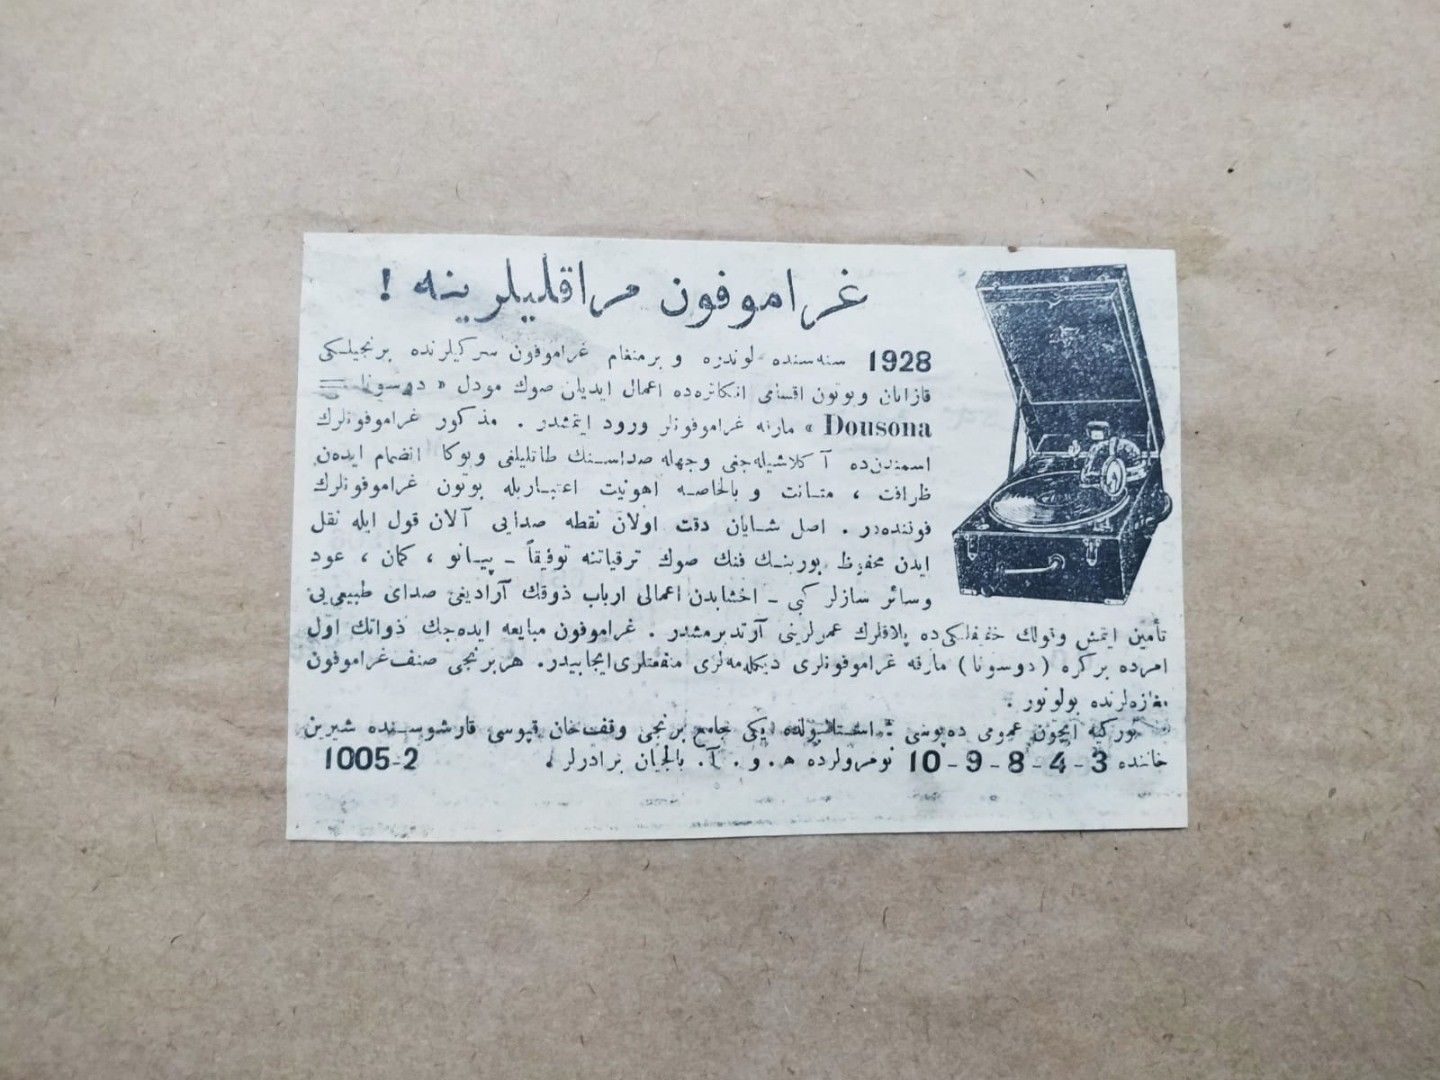 غراموفون مراقلیلرینه !
1928 سنه‌سنده لوندره و برمنغام غراموفون سرکیلرنده برنجیلکی
قازانان و بوتون اقسامی انکلتره‌ده اعمال ایدیلن صوك مودل « دوسونا =
Dousona » مارقه غراموفونلر ورود ایتمشدر . مذکور غراموفونلرك
اسمندن‌ده آکلاشیله‌جغی وجهله صداسنك طاتلیلغی و بوکا انضمام ایدن
ظرافت ، متانت و بالخاصه اهونیت اعتباریله بوتون غراموفونلرك
فوقنده‌در . اصل شایان دقت اولان نقطه صدایی آلان قول ایله نقل
ایدن محفوظ بورینك فنك صوك ترقیاتنه توفیقاً - پیانو ، کمان ، عود
وسائر سازلر کبی - اخشابدن اعمالی ارباب ذوقك آرادیغی صدای طبیعی‌یی
تأمین ایتمش وقولك خفیفلکی‌ده پلاقلرك عمرلرینی آرتدیرمشدر . غراموفون مبایعه ایده‌جك ذواتك اول
امرده برکره ( دوسونا ) مارقه غراموفونلری دیکله‌مه‌لری منفعتلری ایجابیدر. هر برنجی صنف غراموفون
مغازه‌لرنده بولونور .
تورکیه ایچون عمومی ده‌پوسی : استانبولده یکی جامع برنجی وقف خان قپوسی قارشوسنده شیرین
خاننده 3 - 4 - 8 - 9 - 10 نومرولرده ه . و . آ. بالجیان برادرلر . 1005-2